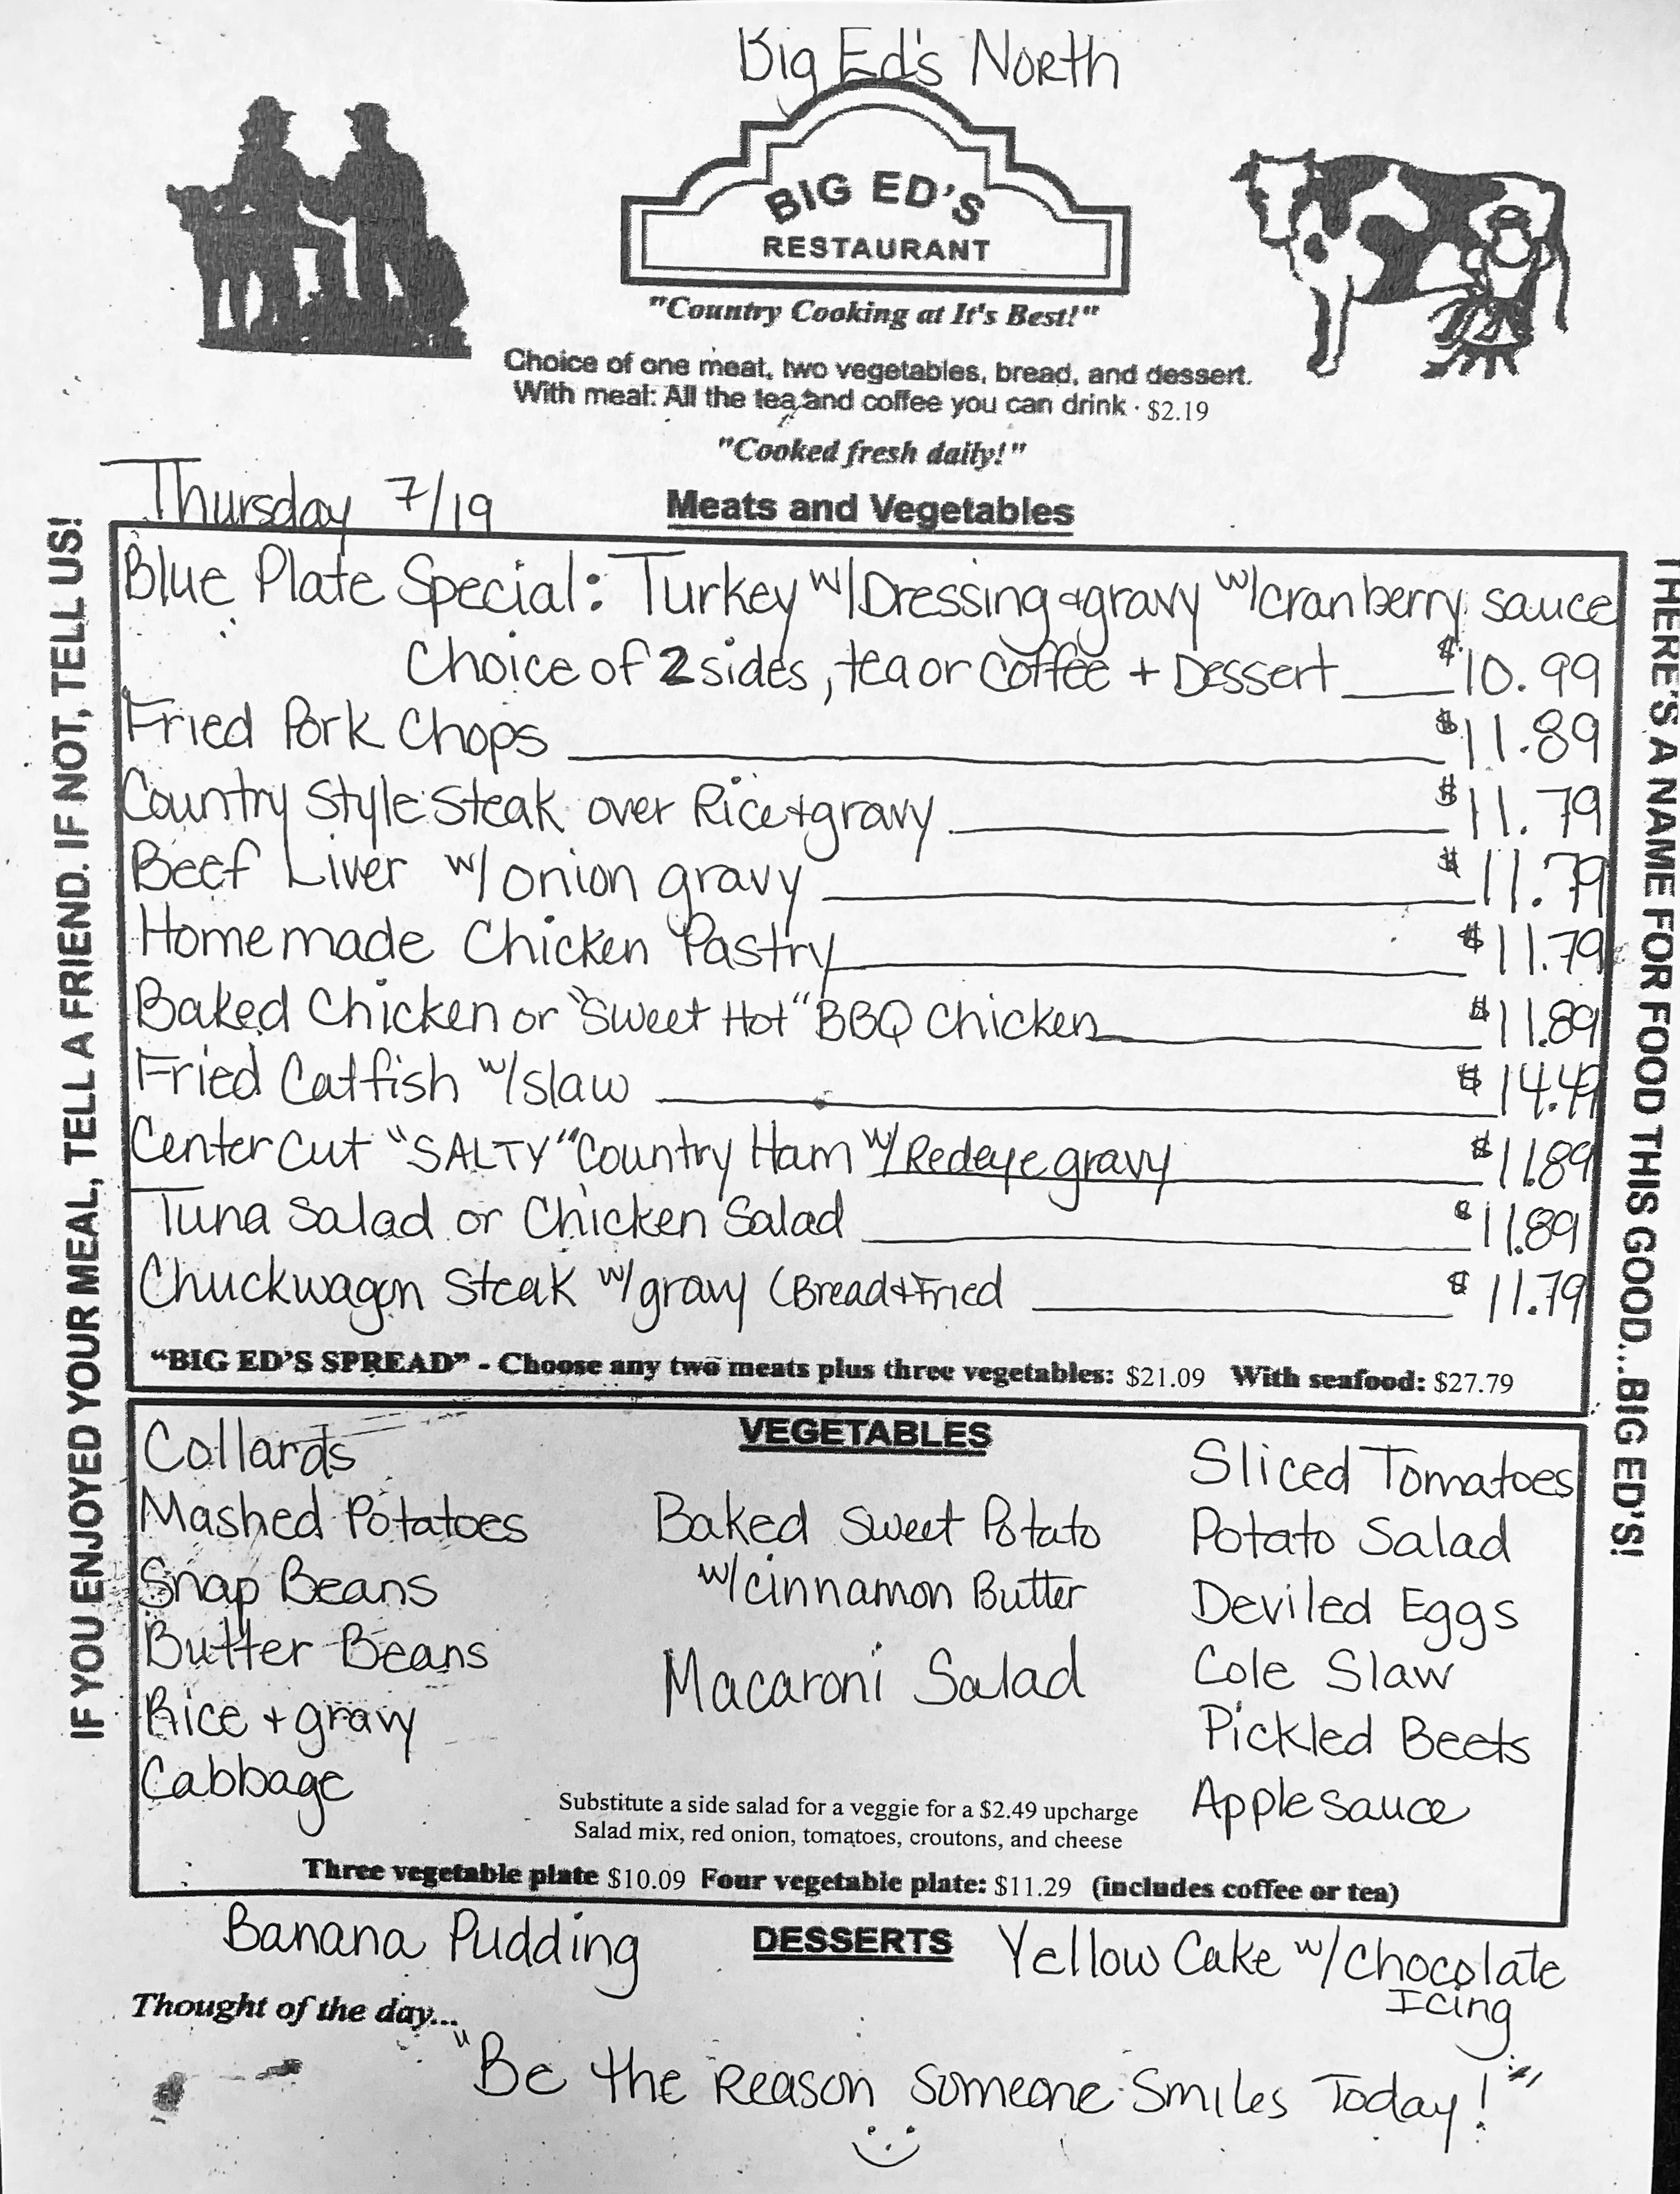 Big Ed's North
BIG ED'S
RESTAURANT
"Country Cooking at It's Best!"
Choice of one meat, two vegetables, bread, and dessert.
With meal: All the tea and coffee you can drink · $2.19
"Cooked fresh daily!"
Thursday 7/19
Meats and Vegetables
Blue Plate Special: Turkey w/Dressing & gravy w/cranberry sauce
Choice of 2 sides, tea or coffee + Dessert $10.99
Fried Pork Chops $11.89
Country Style Steak over Rice + gravy $11.79
Beef Liver w/ onion gravy $11.79
Homemade Chicken Pastry $11.79
Baked Chicken or "Sweet Hot" BBQ Chicken $11.89
Fried Catfish w/slaw $14.49
Center Cut "SALTY" Country Ham w/ Redeye gravy $11.89
Tuna Salad or Chicken Salad $11.89
Chuckwagon Steak w/gravy (Bread + Fried $11.79
"BIG ED'S SPREAD" - Choose any two meats plus three vegetables: $21.09 With seafood: $27.79
VEGETABLES
Collards
Mashed Potatoes
Snap Beans
Butter Beans
Rice + gravy
Cabbage
Baked Sweet Potato
w/cinnamon Butter
Macaroni Salad
Sliced Tomatoes
Potato Salad
Deviled Eggs
Cole Slaw
Pickled Beets
Applesauce
Substitute a side salad for a veggie for a $2.49 upcharge
Salad mix, red onion, tomatoes, croutons, and cheese
Three vegetable plate $10.09 Four vegetable plate: $11.29 (includes coffee or tea)
DESSERTS
Banana Pudding
Yellow Cake w/Chocolate
Icing
Thought of the day...
"Be the Reason Someone Smiles Today!"
IF YOU ENJOYED YOUR MEAL, TELL A FRIEND. IF NOT, TELL US!
THERE'S A NAME FOR FOOD THIS GOOD...BIG ED'S!